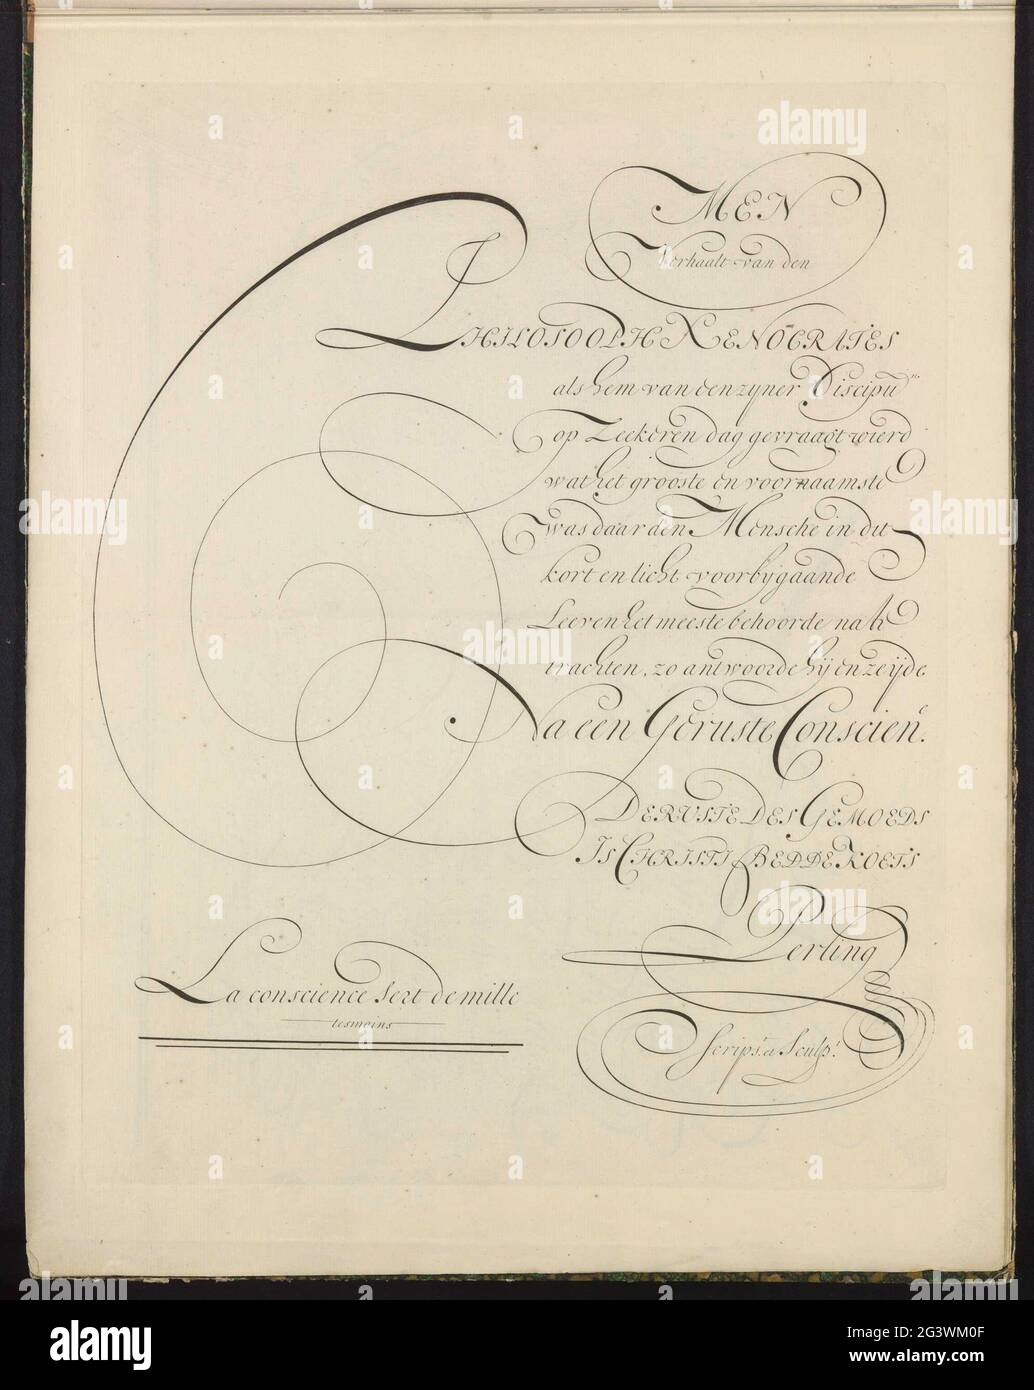 MEN
Verhaalt van den
PHILOSOOPH XENOCRATES
als hem van een zyner Discipu
op Zeekeren dag gevraagt wierd
wat het grooste en voornaamste
was daar den Mensche in dit
kort en licht voorbijgaande
Leeven het meeste behoorde na te
trachten, zo antwoorde hij en zeijde
Na een Geruste Conscien.
DE RUSTE DES GEMOEDS
IS CHRISTI BEDDEKOETS
Perling
Scrips. et Sculp.
La conscience sert de mille
tesmoins
alamy
alamy
Image ID: 2G3WM0F
www.alamy.com